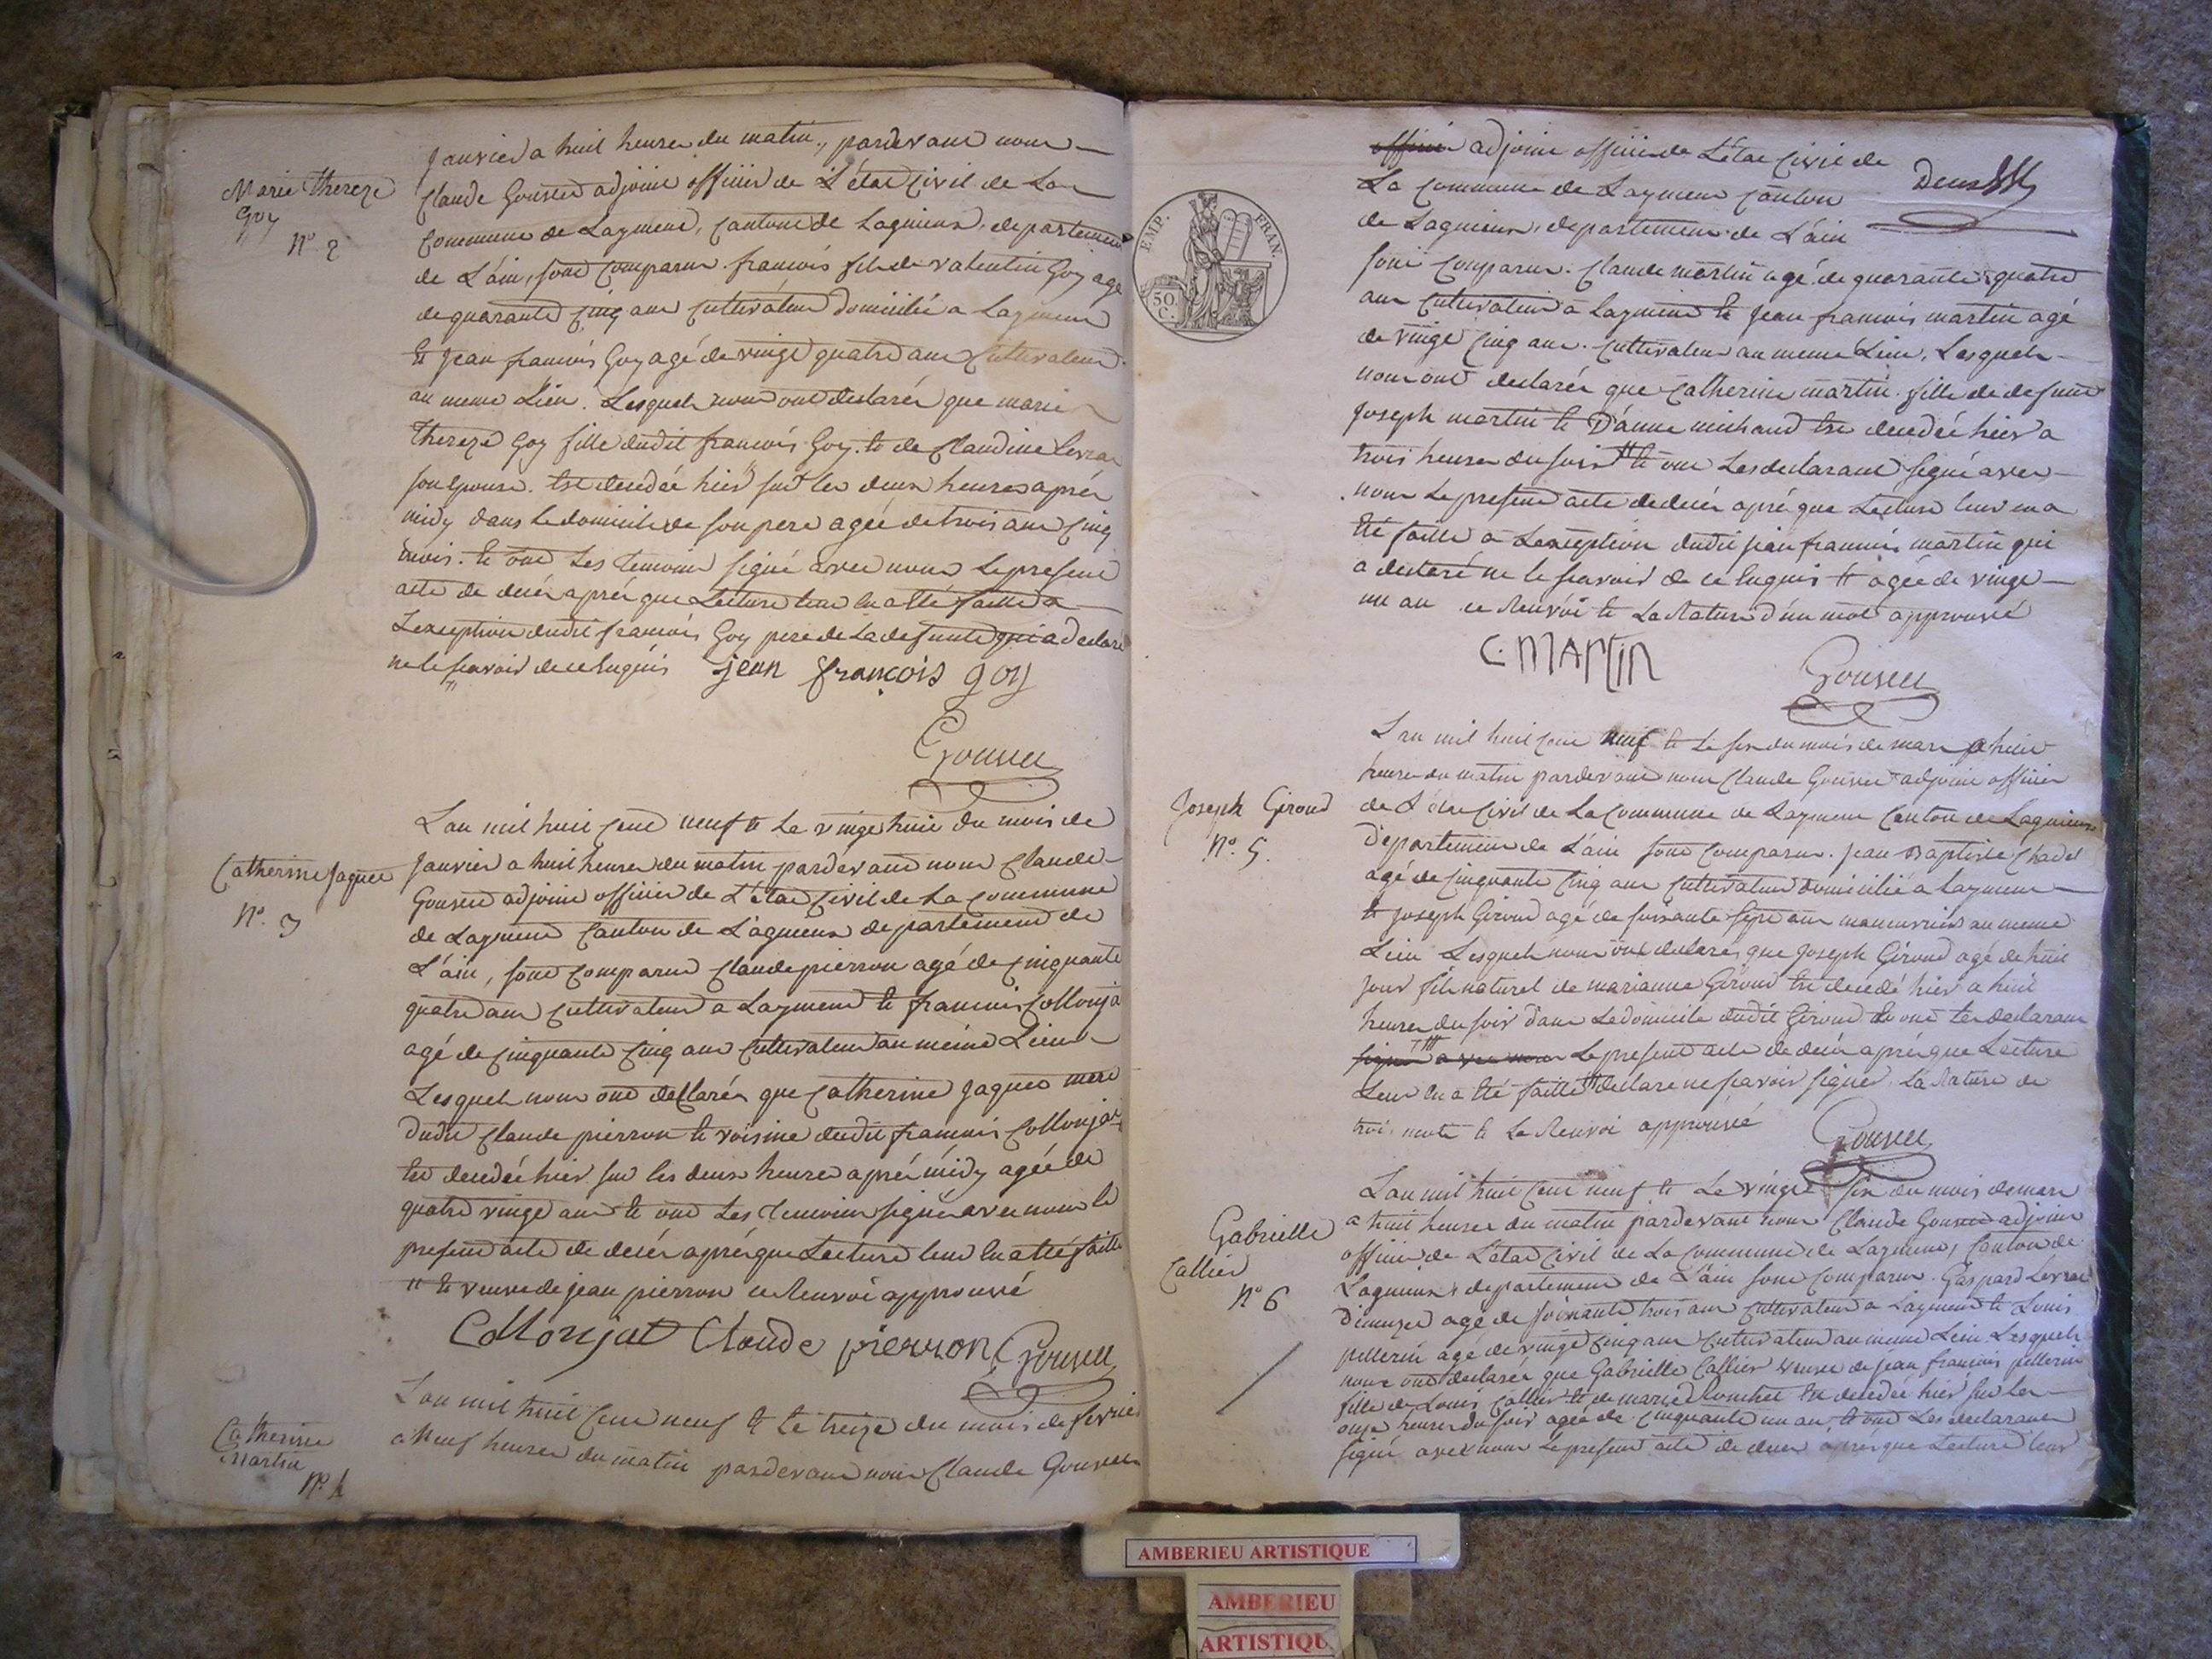 Marie Thereze
Goy
N° 2
Janvier a huit heures du matin, pardevant nous
Claude Gousset adjoint officier de L'état Civil de La
Commune de Laymend, Canton de Lagnieux, departement
de L'ain, sont Comparus francois fils de valentin Goy agé
de quarante cinq ans cultivateur domicilié a Laymend
et jean francois Goy agé de vingt quatre ans Cultivateur
au meme Lieu. Lesquels nous ont declarés que marie
thereze Goy fille dudit francois Goy et de Claudine Levrat
son Epouse. Est decedée hier sur les deux heures aprés
midy dans Le domicile de son pere agée de trois ans Cinq
mois. Et ont Les temoins signé avec nous Le present
acte de decés aprés que Lecture leur En a Eté faitte a
L'exeption dudit francois Goy pere de La defunte qui a declaré
ne le scavoir de ce Enquis jean françois goy
Gousset
Catherine Jaquet
N° 3
L'an mil huit Cent neuf et Le vingt huit du mois de
Janvier a huit heures du matin pardevant nous Claude
Gousset adjoint officier de L'état Civil de La Commune
de Laymend Canton de Lagnieux departement de
L'ain, sont Comparus Claude pierron agé de Cinquante
quatre ans Cultivateur a Laymend et francois Collonja
agé de Cinquante Cinq ans Cultivateur au même Lieu
Lesquels nous ont declarés que Catherine Jaquet mere
dudit Claude pierron et voisine dudit francois Collonja
Est decedée hier sur les deux heures aprés midy agée de
quatre vingt ans et ont Les temoins signé avec nous le
present acte de decés aprés que Lecture leur En a Eté faitte
et veuve de jean pierron ce Renvoi approuvé
Collonjat Claude pierron Gousset
Catherine
Martin
N° 4
L'an mil huit Cent neuf et le treize du mois de fevrier
a Neuf heures du matin pardevant nous Claude Gousset
officier adjoint officier de L'état Civil de
La Commune de Laymend Canton
de Lagnieux, departement de L'ain
EMP. FRAN.
50 C.
sont Comparus. Claude martin agé de quarante quatre
ans Cultivateur a Laymend et jean francois martin agé
de vingt Cinq ans. Cultivateur au meme Lieu, Lesquels
nous ont declarés que Catherine martin fille de defunt
Joseph martin et D'anne michaud Est decedée hier a
trois heures du soir et ont Les declarant signé avec
nous Le present acte de decés aprés que Lecture leur en a
Eté faitte a L'exeption dudit jean francois martin qui
a declaré ne le scavoir de ce Enquis agée de vingt
un an ce Renvoi et La Rature d'un mot approuvé
C. MARTIN
Gousset
Joseph Giroud
N° 5.
L'an mil huit Cent neuf et Le six du mois de mars a huit
heures du matin pardevant nous Claude Gousset adjoint officier
de L'état Civil de La Commune de Laymend Canton de Lagnieux
departement de L'ain sont Comparus. Jean Baptiste Chadel
agé de Cinquante Cinq ans Cultivateur domicilié a Laymend
et Joseph Giroud agé de soixante sept ans manouvrier au meme
Lieu Lesquels nous ont declarés que Joseph Giroud agé de huit
jours fils naturel de marianne Giroud Est decedé hier a huit
heures du soir dans Le domicile dudit Giroud Et ont les declarans
signé avec nous Le present acte de decés aprés que Lecture
Leur En a Eté faitte declaré ne scavoir signer La Rature de
trois mots et Le Renvoi approuvé Gousset
Gabrielle
Callier
N° 6
L'an mil huit Cent neuf et Le vingt six du mois de mars
a huit heures du matin pardevant nous Claude Gousset adjoint
officier de L'état Civil de La Commune de Laymend, Canton de
Lagnieux departement de L'ain sont Comparus. Gaspard Levrat
agé de soixante trois ans Cultivateur a Laymend et Louis
pellerin agé de vingt Cinq ans Cultivateur au meme Lieu Lesquels
nous ont declarés que Gabrielle Callier veuve de jean francois pellerin
fille de Louis Callier et de marie Est decedée hier sur les
onze heures du soir agée de Cinquante un an et ont Les declarants
signé avec nous Le present acte de decés aprés que Lecture leur
AMBERIEU ARTISTIQUE
AMBERIEU
ARTISTIQU